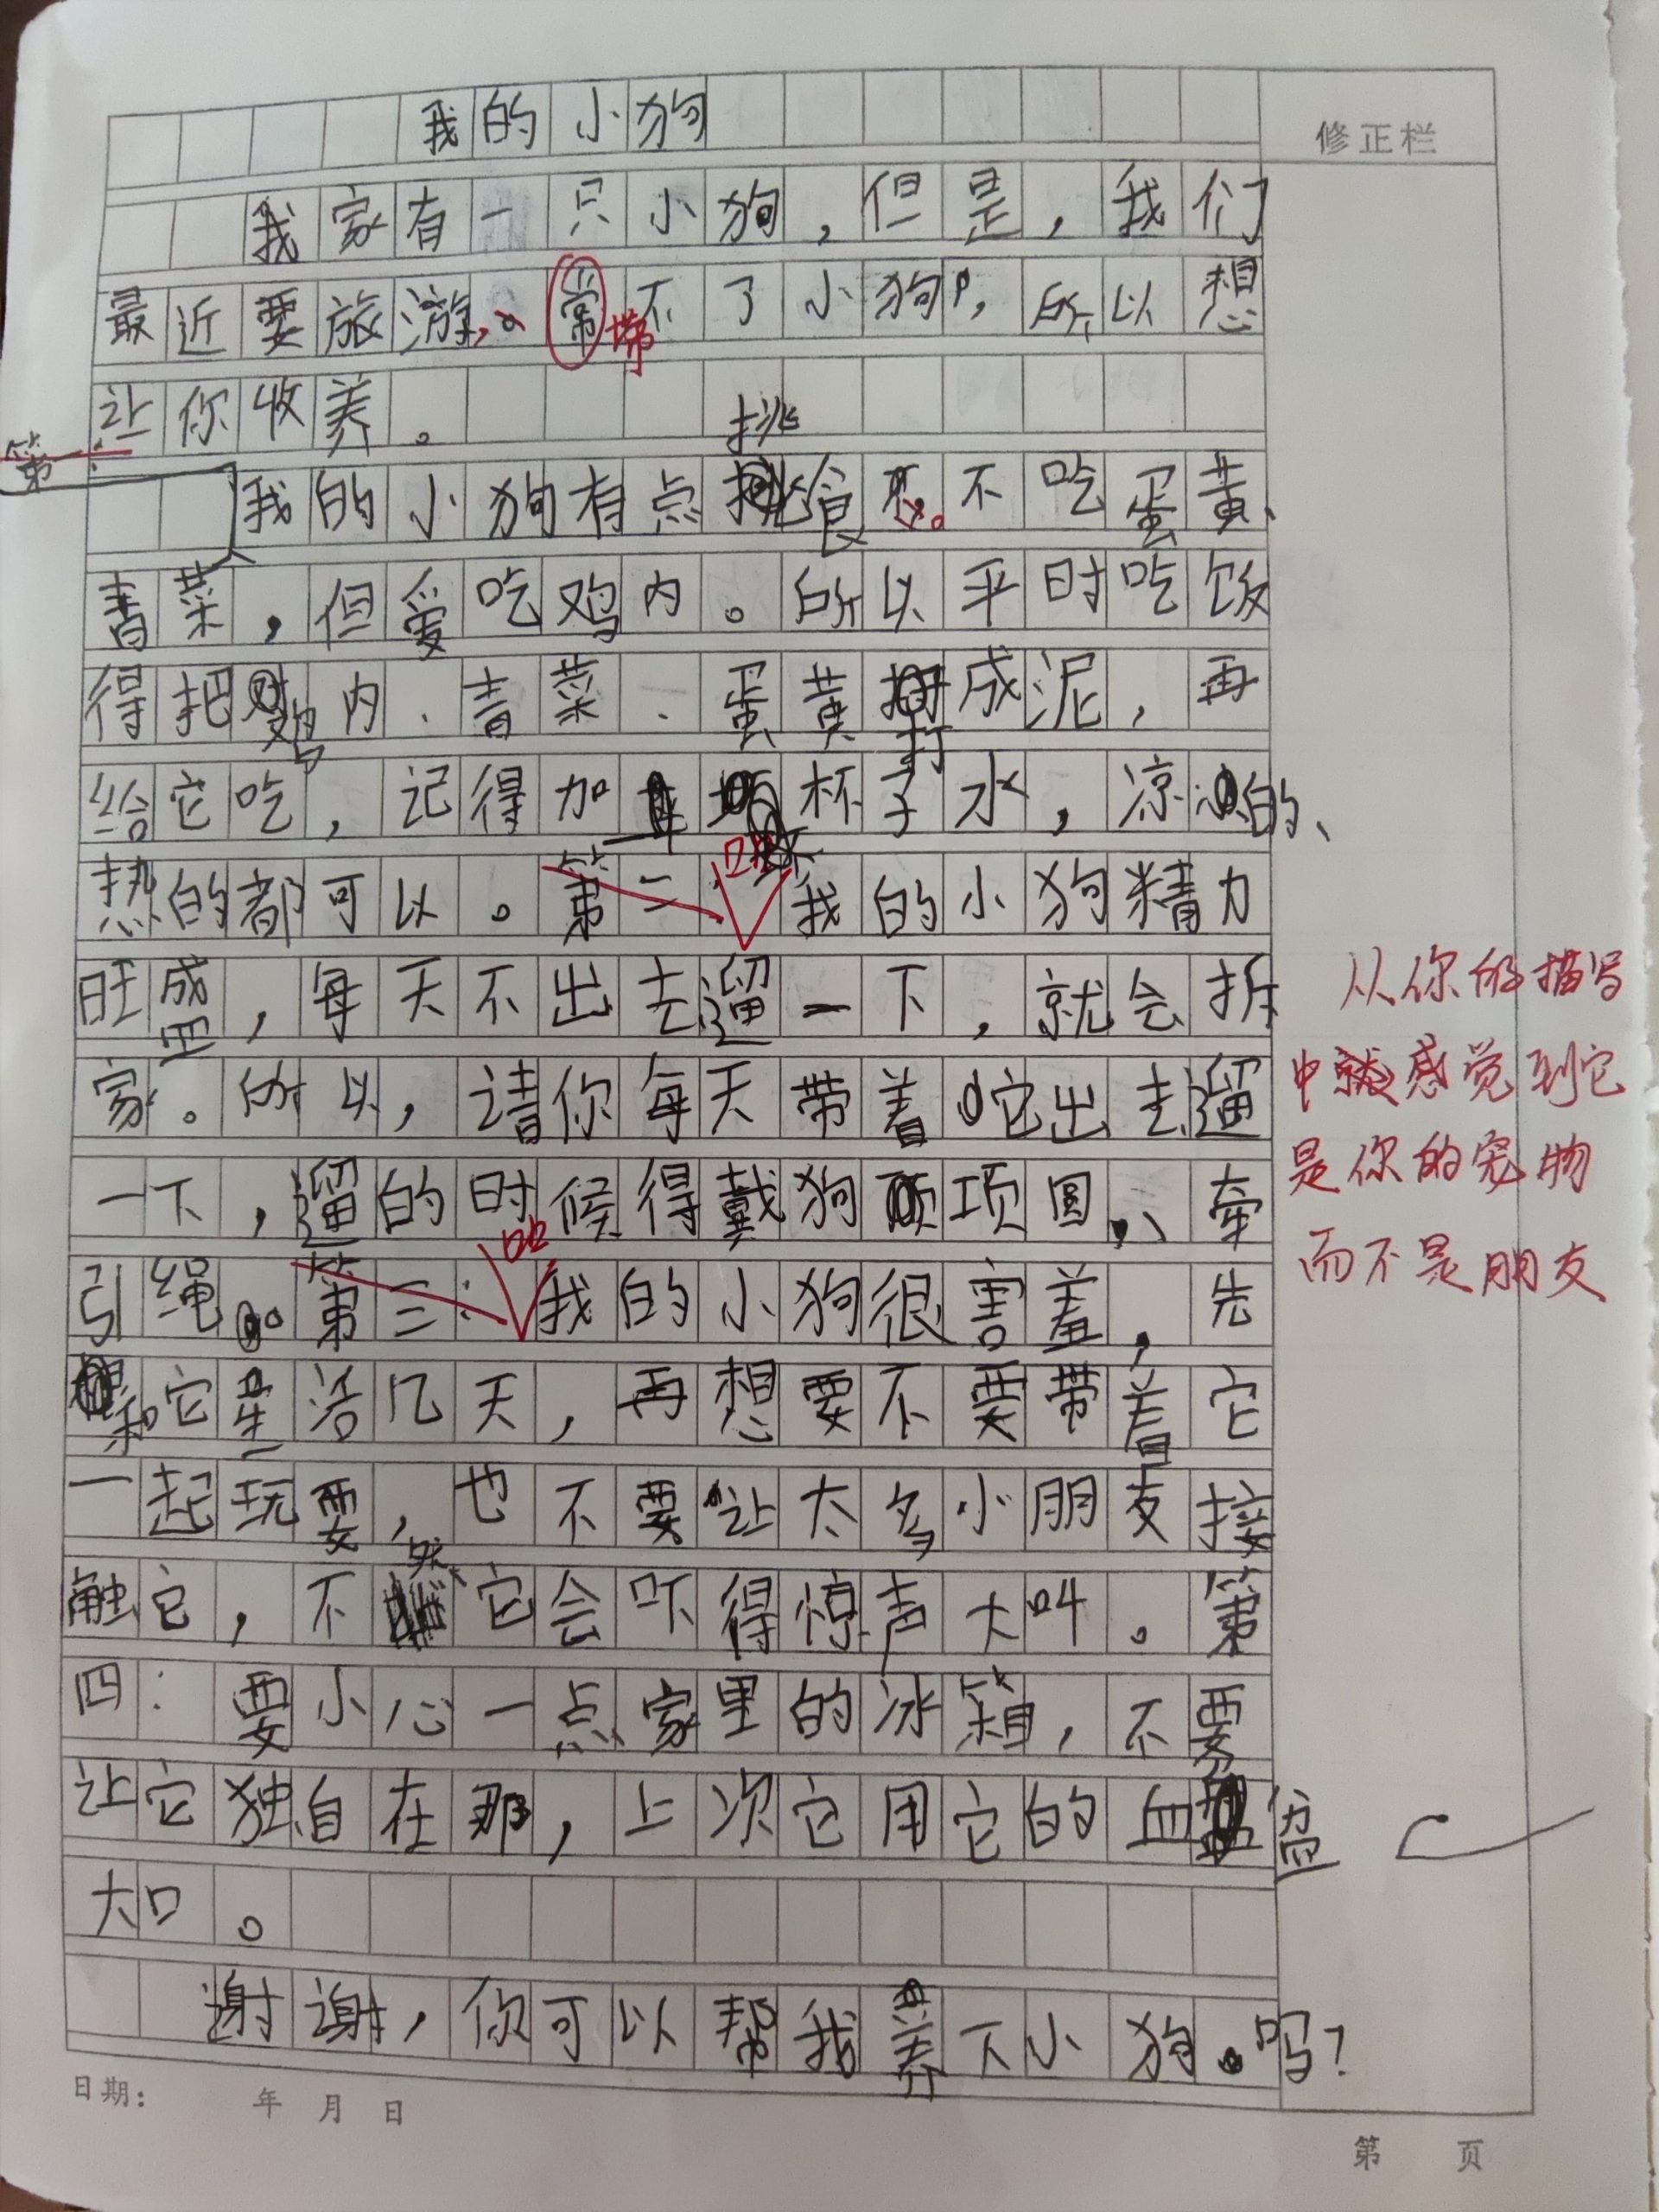 我的小狗
修正栏
我家有一只小狗，但是，我们
最近要旅游，常带不了小狗，所以想
让你收养。
第一：
挑
我的小狗有点挑食。不吃蛋黄、
青菜，但爱吃鸡内。所以平时吃饭
得把鸡内、青菜、蛋黄打成泥，再
给它吃，记得加一杯子水，凉的、
热的都可以。第二：我的小狗精力
旺盛，每天不出去遛一下，就会拆
家。所以，请你每天带着它出去遛
一下，遛的时候得戴狗项圆、牵
引绳。第三：我的小狗很害羞，先
和它生活几天，再想要不要带着它
一起玩耍，也不要让太多小朋友接
触它，不然它会吓得惊声大叫。第
四：要小心一点家里的冰箱，不要
让它独自在那，上次它用它的血盆
大口。
谢谢，你可以帮我养下小狗吗？
从你的描写
中就感觉到它
是你的宠物
而不是朋友
日期： 年 月 日
第 页